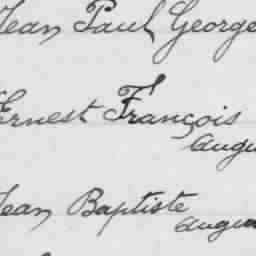 Jean Paul George
Ernest François
Jean Baptiste